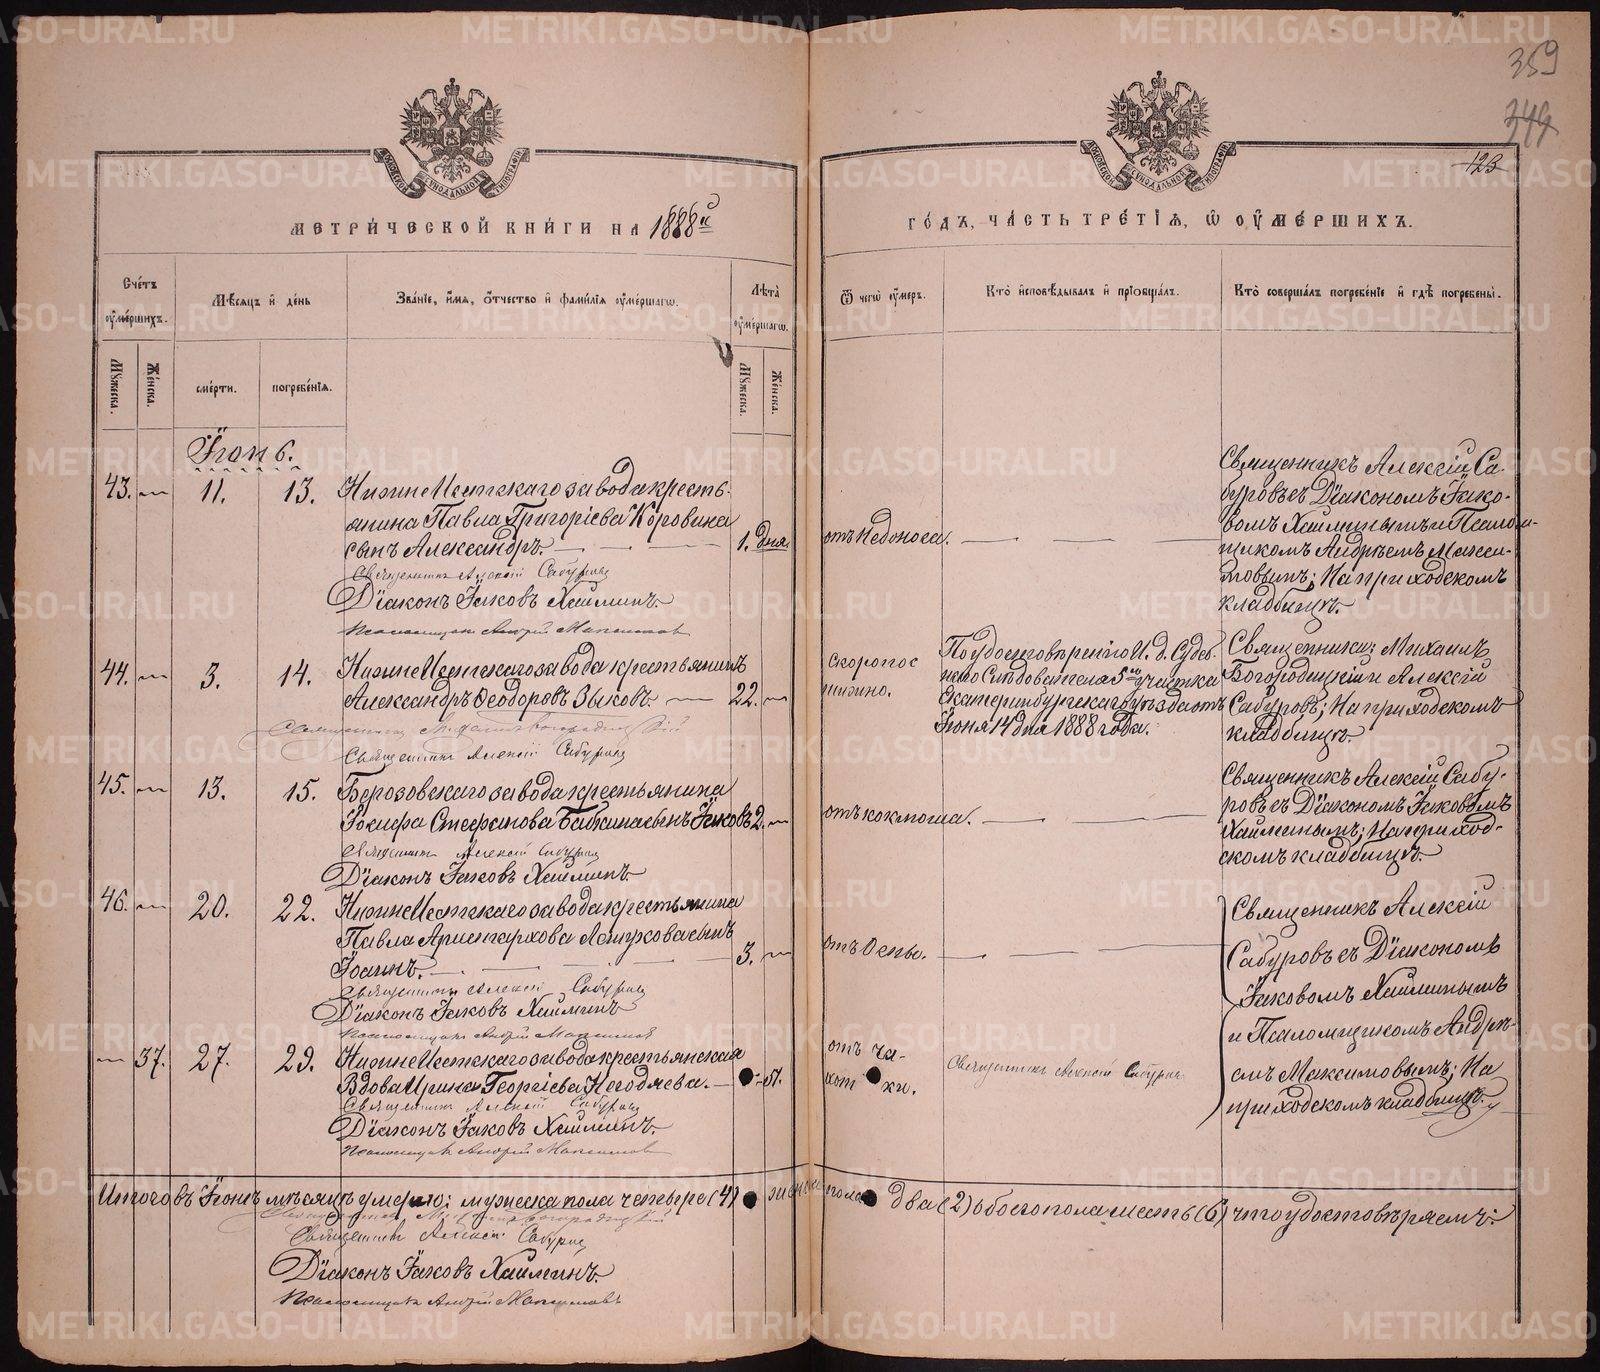 359
344
123
МЕТРИ́ЧЕСКОЙ КНИ́ГИ НА 1888й
ГО́ДЪ, ЧА́СТЬ ТРЕ́ТІѦ, Ѡ ОУ҆МЕ́РШИХЪ.
Сче́тъ оу҆ме́ршихъ.
Мѣ́сѧцъ и҆ де́нь
Зва́нїе, и҆́мѧ, ѻ҆́тчество и҆ фами́лїѧ оу҆ме́ршагѡ.
Лѣ́та оу҆ме́ршагѡ.
Ѿ чегѡ̀ оу҆́меръ.
Кто̀ и҆сповѣ́дывалъ и҆ прїѡбща́лъ.
Кто̀ соверша́лъ погребе́нїе и҆ гдѣ̀ погребены̀.
Мꙋ́жеска.
Же́нска.
сме́рти.
погребе́нїѧ.
Мꙋ́жеска.
Же́нска.
Іюнь.
43. 11. 13. Нижне Исетскаго завода кресть-
янина Павла Григоріева Коровина
сынъ Александръ. 1. дня
Священникъ Алексій Сабуровъ
Діаконъ Іаковъ Хаминъ.
Псаломщикъ Андрей Максимовъ
отъ недоноса.
Священникъ Алексій Са-
буровъ съ Діакономъ Іако-
вомъ Хаминымъ и Псалом-
щикомъ Андреемъ Макси-
мовымъ; На приходскомъ
кладбищѣ.
44. 3. 14. Нижне Исетскаго завода крестьянинъ
Александръ Ѳеодоровъ Зыковъ. 22.
Священникъ Михаилъ Богородицкій
Священникъ Алексій Сабуровъ
скоропос
тижно.
По удостовѣренію И. д. Судеб-
наго Слѣдователя 5го участка
Екатеринбургскаго уѣзда отъ
Іюня 14 дня 1888 года.
Священники: Михаилъ
Богородицкій и Алексій
Сабуровъ; На приходскомъ
кладбищѣ.
45. 13. 15. Березовскаго завода крестьянина
Іосифа Стефанова Бабкина сынъ Іаковъ 2.
Священникъ Алексій Сабуровъ
Діаконъ Іаковъ Хаминъ.
отъ коклюша.
Священникъ Алексій Сабу-
ровъ съ Діакономъ Іаковомъ
Хаминымъ; На приход-
скомъ кладбищѣ.
46. 20. 22. Нижне Исетскаго завода крестьянина
Павла Аристархова сынъ
Іоаннъ. 3.
Священникъ Алексій Сабуровъ
Діаконъ Іаковъ Хаминъ
Псаломщикъ Андрей Максимовъ
отъ Оспы.
Священникъ Алексій
Сабуровъ съ Діакономъ
Іаковомъ Хаминымъ
и Псаломщикомъ Андре-
емъ Максимовымъ; На
приходскомъ кладбищѣ.
37. 27. 29. Нижне Исетскаго завода крестьянская
Вдова Ирина Георгіева Негодяева. 51.
Священникъ Алексій Сабуровъ
Діаконъ Іаковъ Хаминъ.
Псаломщикъ Андрей Максимовъ
отъ ча-
хот ки.
Священникъ Алексій Сабуровъ
Итого въ Іюнѣ мѣсяцѣ умерло: мужеска пола четыре (4) женска пола два (2) обоего пола шесть (6) что удостовѣряемъ:
Священникъ Михаилъ Богородицкій
Священникъ Алексій Сабуровъ
Діаконъ Іаковъ Хаминъ.
Псаломщикъ Андрей Максимовъ
METRIKI.GASO-URAL.RU